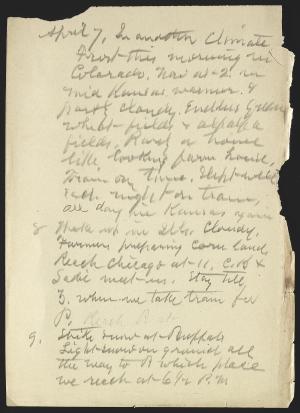 April 7, In another Climate
Frost this morning in
Colorado. Now at 2. in
mid Kansas warmer &
partly cloudy. Endless Green
wheat-fields & alfalfa
fields. Rarely a home
like looking farm house,
Train on time. Slept well
last night on train,
all day in Kansas again
8 Wake up in Ills. Cloudy,
Farmers preparing corn land.
Reach Chicago at 11, C. B &
Sadie meet us. Stay till
3. when we take train for
P.
9. Strike snow at Buffalo
Light snow on ground all
the way to R which place
we reach at 6½ P.M